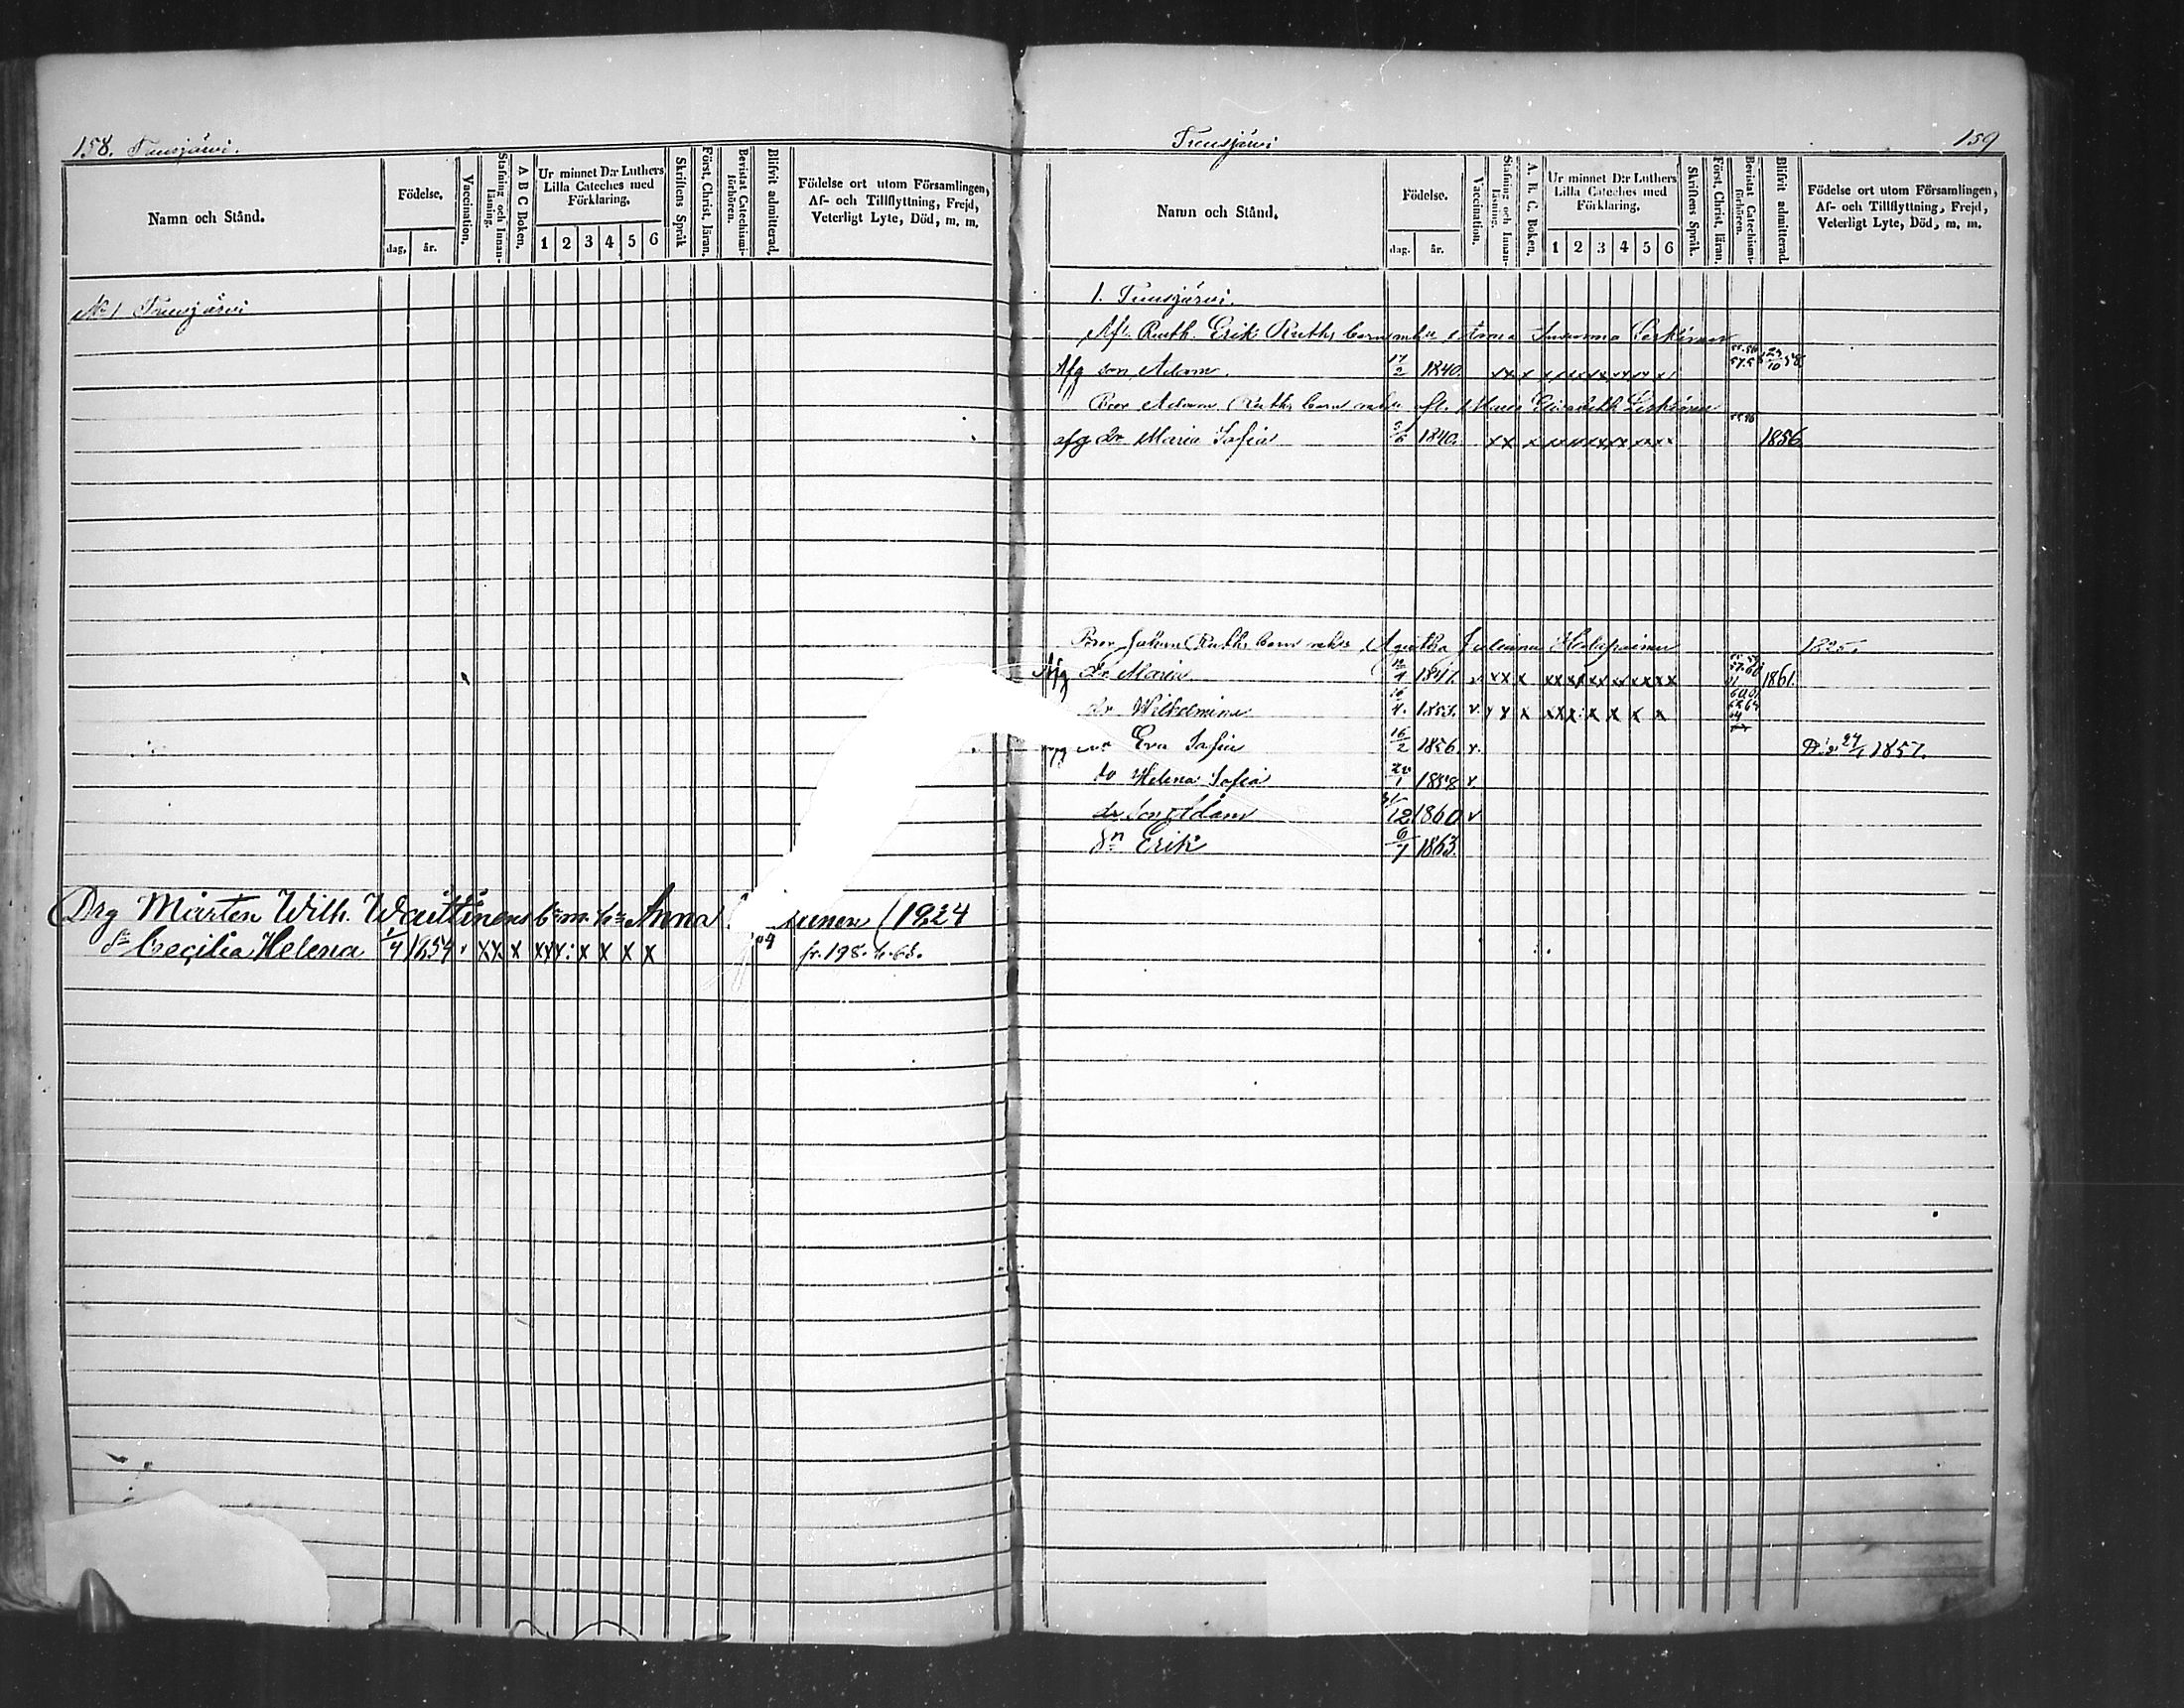 158. Tensjärvi.
Namn och Stånd.
Födelse.
dag. år.
Vaccination.
Stafning och Innanläsning.
A B C Boken.
Ur minnet D:r Luthers Lilla Cateches med Förklaring.
1 2 3 4 5 6
Skriftens Språk
Först. Christ. läran.
Bevistat Catechismiförhören.
Blifvit admitterad.
Födelse ort utom Församlingen,
Af- och Tillflyttning, Frejd,
Veterligt Lyte, Död, m. m.
No 1 Tensjärvi
Drg Mårten Wilh. Wauttinens bn m. h. Anna unen (1824
dr Cecilia Helena 1/4 1854 xx x xxx: x x x x fr. 198. 4. 68.
Tensjärvi 159
Namn och Stånd.
Födelse.
dag. år.
Vaccination.
Stafning och Innanläsning.
A. B. C. Boken.
Ur minnet D:r Luthers Lilla Cateches med Förklaring.
1 2 3 4 5 6
Skriftens Språk.
Först. Christ. läran.
Bevistat Catechismiförhören.
Blifvit admitterad.
Födelse ort utom Församlingen,
Af- och Tillflyttning, Frejd,
Veterligt Lyte, Död, m. m.
1. Tensjärvi.
Afl. Ruth. Erik Ruths barn Anna Susanna Leskinen
Afg son Adam. 17/2 1840. 23/10 58
Bror Adam Ruths barn Maria Elisabeth Leskinen
afg dr Maria Sofia 1840. 1856
Bror Johan Ruths barn Agatha Juliana Holopainen 1825.
Afg dr Maria 1847. 1861.
dr Wilhelmina
Eva Sofia 16/2 1856. v. Död 27/1 1857.
dr Helena Sofia 20/1 1858 v.
Son Adam 12 1860 v
sn Erik 6/7 1863.